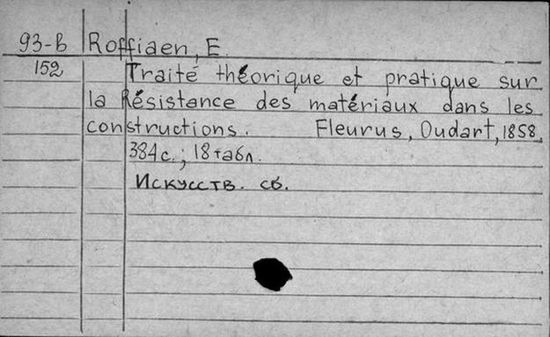 93-B Roffiaen, E.
152 Traité théorique et pratique sur
la Résistance des matériaux dans les
constructions. Fleurus, Oudart, 1858.
384 с.; 18 табл.
Искусств. сб.